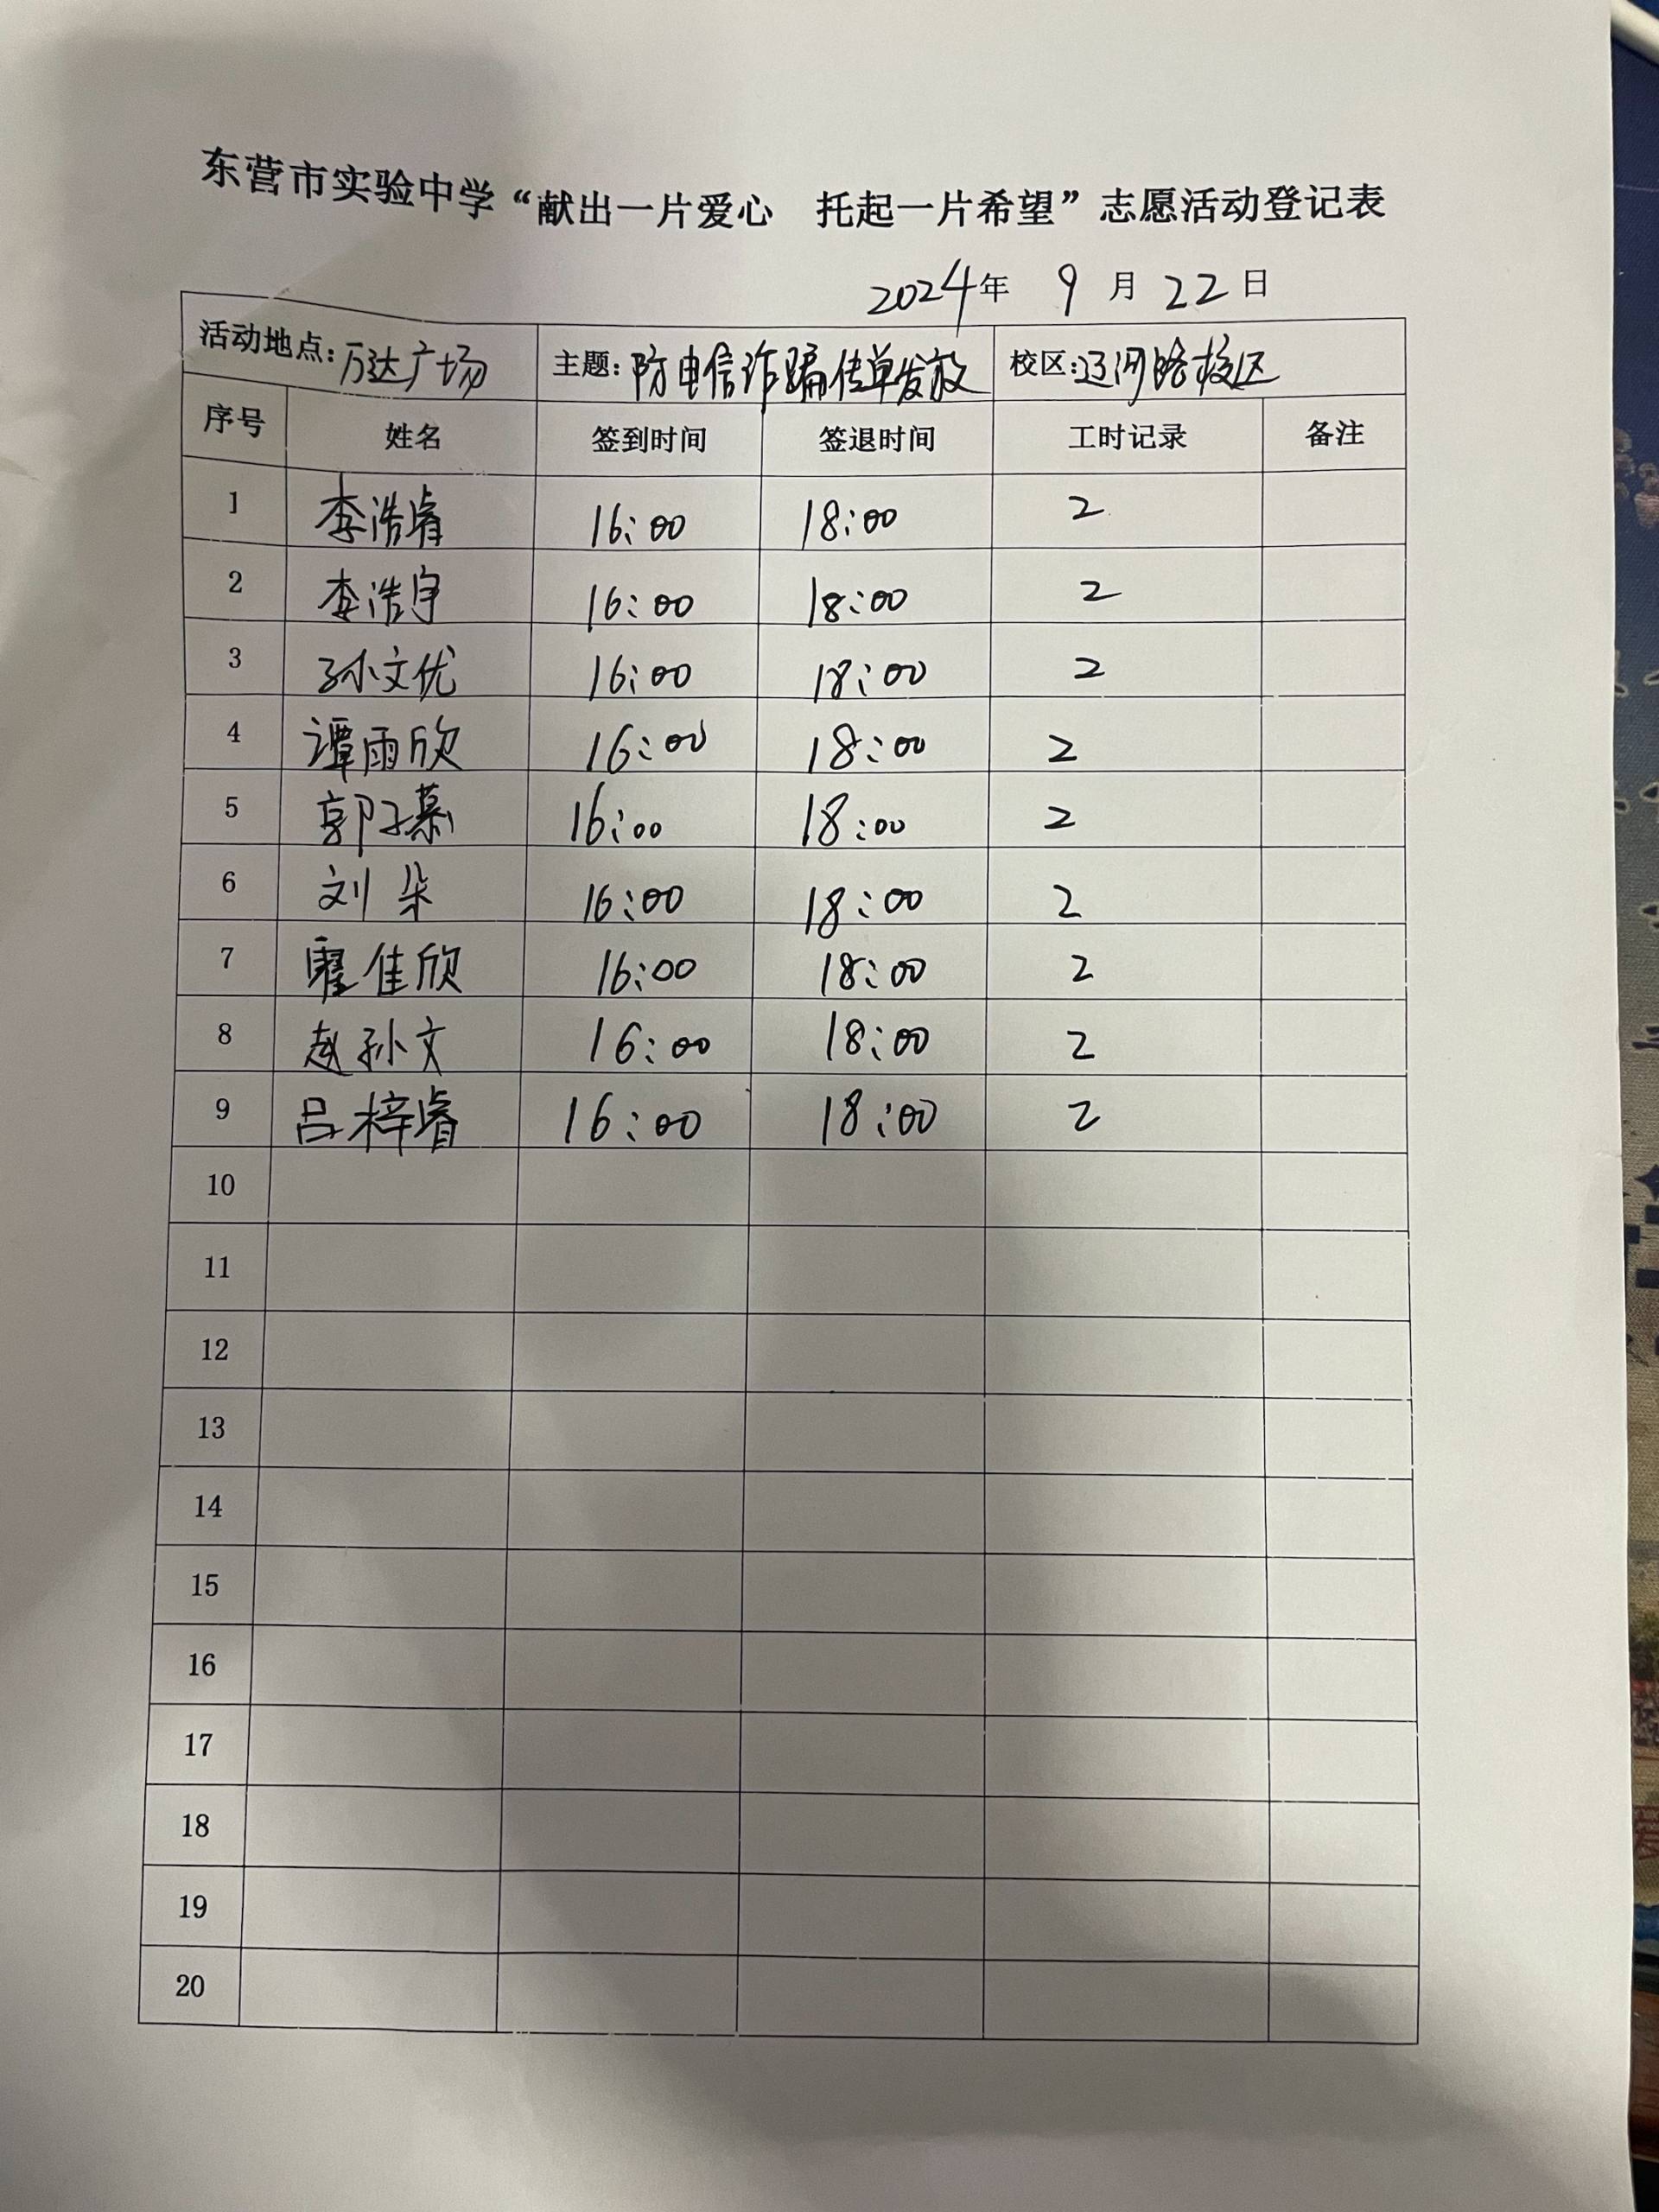 东营市实验中学“献出一片爱心 托起一片希望”志愿活动登记表
2024年 9 月 22 日
活动地点:万达广场 主题:防电信诈骗传单发放 校区:辽河路校区
序号 姓名 签到时间 签退时间 工时记录 备注
1 李浩睿 16:00 18:00 2
2 李浩宇 16:00 18:00 2
3 孙文优 16:00 18:00 2
4 谭雨欣 16:00 18:00 2
5 郭子慕 16:00 18:00 2
6 刘朵 16:00 18:00 2
7 佳欣 16:00 18:00 2
8 赵孙文 16:00 18:00 2
9 吕梓睿 16:00 18:00 2
10
11
12
13
14
15
16
17
18
19
20